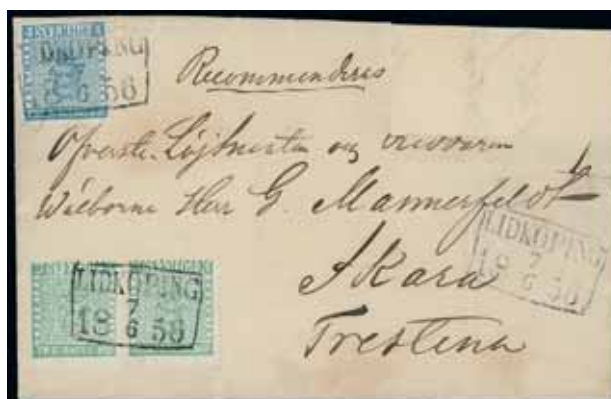 SVERIGE
LIDKÖPING
7
18 6 56
Recommenderas
Öfverste Löjtnanten och
Wälborne Herr G. Mannerfeldt
Skara
Trestena
LIDKÖPING
7
18 6 56
LIDKÖPING
7
18 6 56